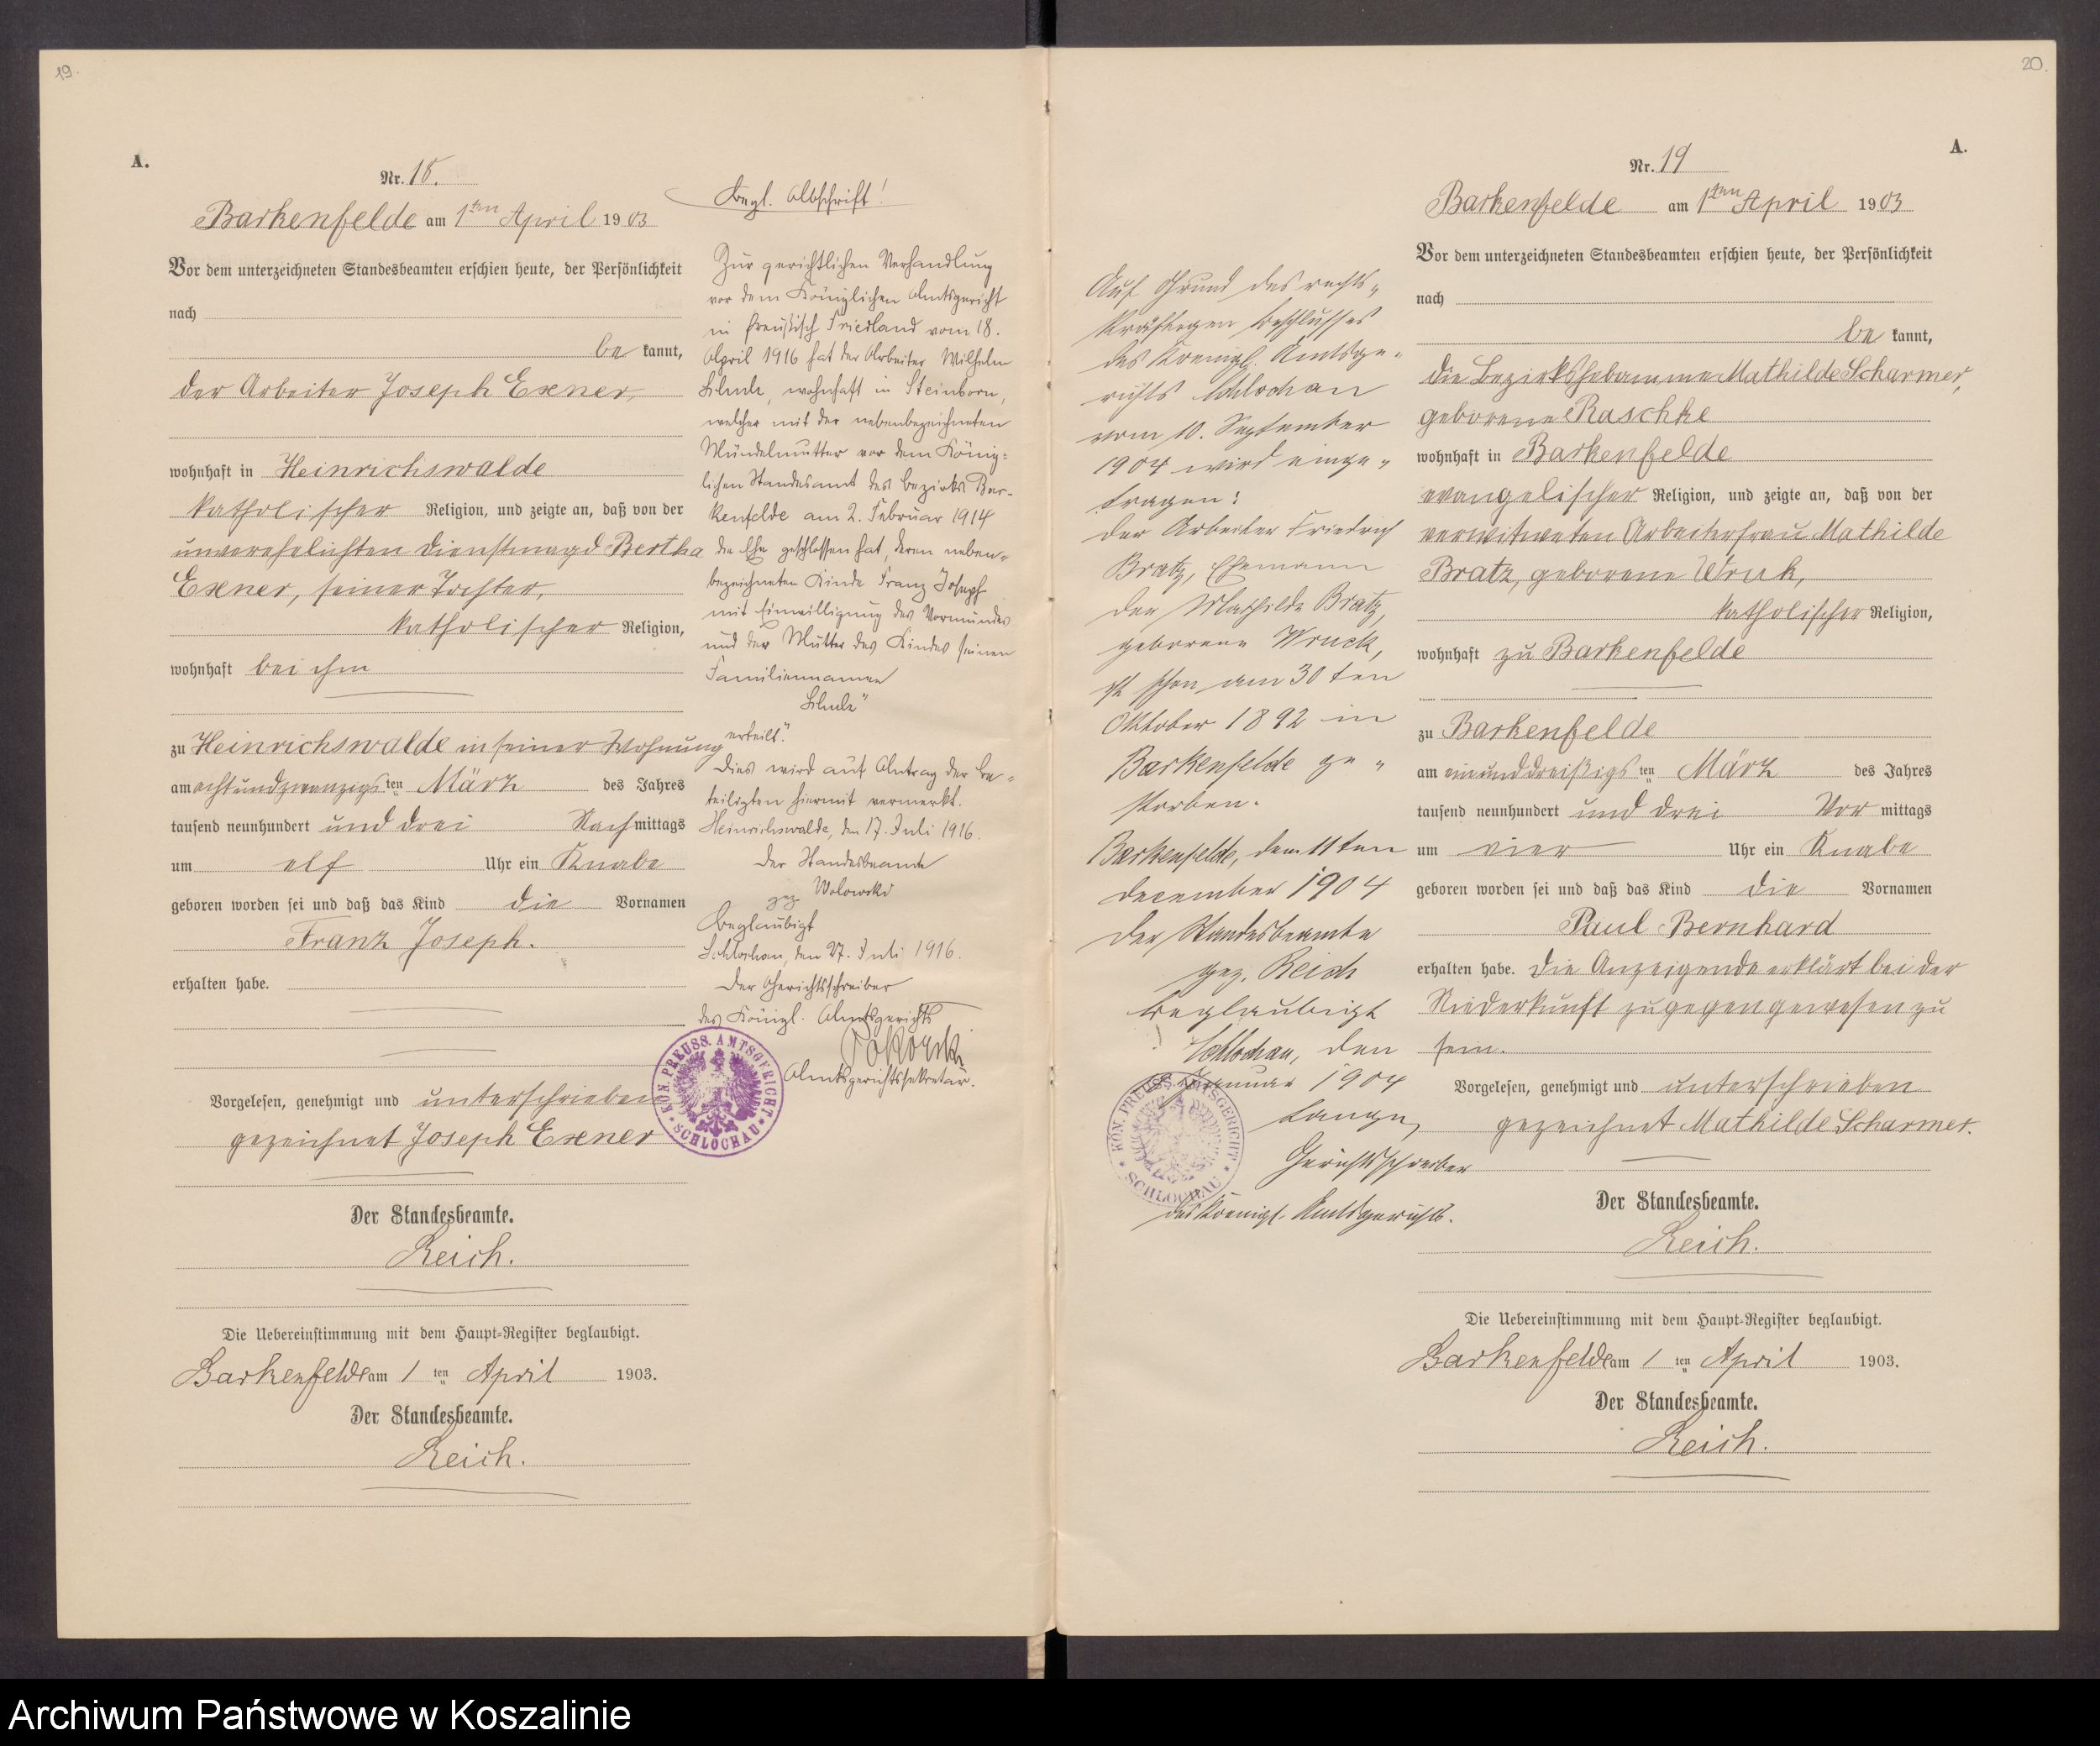 19.
A.
Nr. 18.
Barkenfelde am 1ten April 1903
Vor dem unterzeichneten Standesbeamten erschien heute, der Persönlichkeit
nach
be kannt,
der Arbeiter Joseph Exner,
wohnhaft in Heinrichswalde
katholischer Religion, und zeigte an, daß von der
unverehelichten Dienstmagd Bertha
Exner, seiner Tochter,
katholischer Religion,
wohnhaft bei ihm
zu Heinrichswalde in seiner Wohnung
am achtundzwanzigs ten März des Jahres
tausend neunhundert und drei Nach mittags
um elf Uhr ein Knabe
geboren worden sei und daß das Kind die Vornamen
Franz Joseph.
erhalten habe.
Vorgelesen, genehmigt und unterschrieben
gezeichnet Joseph Exner
Der Standesbeamte.
Reich.
Die Uebereinstimmung mit dem Haupt-Register beglaubigt.
Barkenfelde am 1 ten April 1903.
Der Standesbeamte.
Reich.
Begl. Abschrift!
Zur gerichtlichen Verhandlung
vor dem Königlichen Amtsgericht
in Preußisch Friedland vom 18.
April 1916 hat der Arbeiter Wilhelm
wohnhaft in Steinborn,
welcher mit der nebenbezeichneten
Mündelmutter vor dem König-
lichen Standesamt des Bezirks Bar-
kenfelde am 2. Februar 1914
die Ehe geschlossen hat, deren neben-
bezeichneten Kinde Franz Joseph
mit Einwilligung des Vormundes
und der Mutter des Kindes seinen
Familiennamen
erteilt."
Dies wird auf Antrag der Be-
teiligten hiermit vermerkt.
Heinrichswalde, den 17. Juli 1916.
Der Standesbeamte
gez Wolowski
Beglaubigt
Schlochau, den 27. Juli 1916.
Der Gerichtsschreiber
des Königl. Amtsgerichts
Amtsgerichtssekretär.
KÖN. PREUSS. AMTSGERICHT
SCHLOCHAU
20.
A.
Nr. 19
Barkenfelde am 1ten April 1903
Vor dem unterzeichneten Standesbeamten erschien heute, der Persönlichkeit
nach
be kannt,
die Bezirkshebamme Mathilde Scharmer,
geborene Raschke
wohnhaft in Barkenfelde
evangelischer Religion, und zeigte an, daß von der
verwitweten Arbeiterfrau Mathilde
Bratz, geborene Wruk,
katholischer Religion,
wohnhaft zu Barkenfelde
zu Barkenfelde
am einunddreißigs ten März des Jahres
tausend neunhundert und drei Vor mittags
um vier Uhr ein Knabe
geboren worden sei und daß das Kind die Vornamen
Paul Bernhard
erhalten habe. Die Anzeigende erklärt bei der
Niederkunft zugegen gewesen zu
sein.
Vorgelesen, genehmigt und unterschrieben
gezeichnet Mathilde Scharmer.
Der Standesbeamte.
Reich.
Die Uebereinstimmung mit dem Haupt-Register beglaubigt.
Barkenfelde am 1 ten April 1903.
Der Standesbeamte.
Reich.
Auf Grund des rechts-
kräftigen Beschlusses
des Koenigl. Amtsge-
richts Schlochau
vom 10. September
1904 wird einge-
tragen:
Der Arbeiter Friedrich
Bratz, Ehemann
der Mathilde Bratz,
geborene Wruck,
ist schon am 30 ten
Oktober 1892 in
Barkenfelde ge-
storben.
Barkenfelde, dem 11ten
December 1904
Der Standesbeamte
gez. Reich
Beglaubigt
Schlochau, den
Januar 1904
Lange,
Gerichtsschreiber
des Koenigl. Amtsgerichts.
KÖN. PREUSS. AMTSGERICHT
SCHLOCHAU
Archiwum Państwowe w Koszalinie